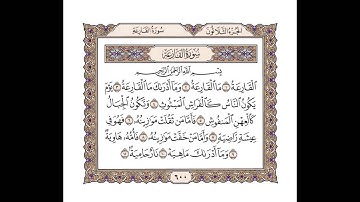 الجزء الثلاثون سورة القارعة
سورة القارعة
بسم الله الرحمن الرحيم
القارعة ١ ما القارعة ٢ وما أدرىك ما القارعة ٣ يوم
يكون الناس كالفراش المبثوث ٤ وتكون الجبال
كالعهن المنفوش ٥ فأما من ثقلت موازينه ٦ فهو في
عيشة راضية ٧ وأما من خفت موازينه ٨ فأمه هاوية
٩ وما أدرىك ما هيه ١٠ نار حامية ١١
٦٠٠